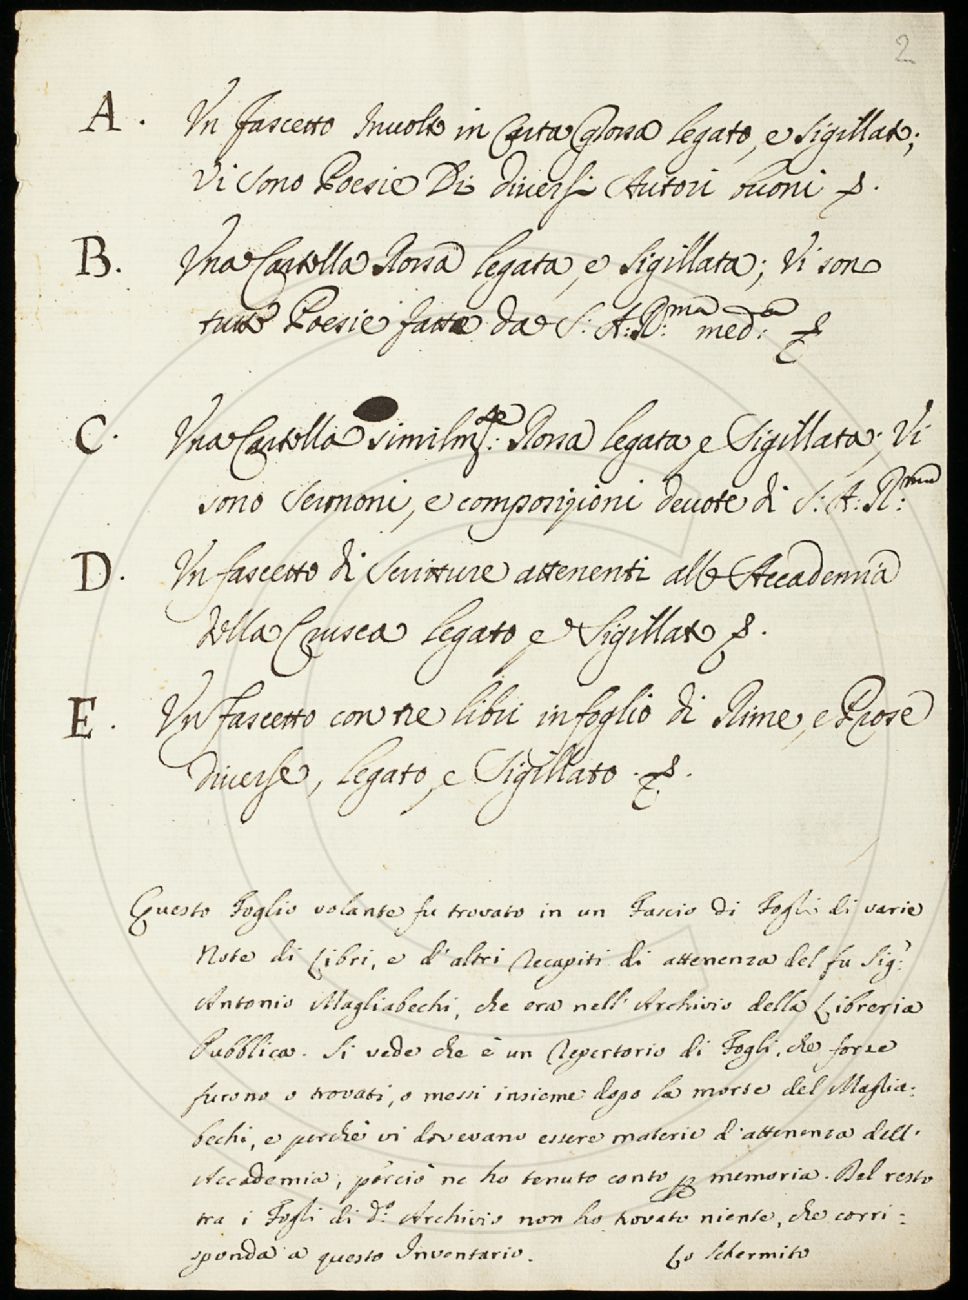 2
A. Un fascetto Involto in Carta Grossa legato, e Sigillato;
Vi sono Poesie Di diversi Autori buoni
B. Una Cartella Rossa legata, e Sigillata; Vi sono
tutte Poesie fatte da S: A: R:ma med:a
C. Una Cartella similm:te Rossa legata e Sigillata; Vi
sono Sermoni, e composizioni devote di S: A: R:ma
D. Un fascetto di Scritture attenenti alle Accademia
della Crusca legato e Sigillato
E. Un fascetto con tre libri in foglio di Rime, e Prose
diverse, legato, e Sigillato.
Questo Foglio volante fu trovato in un Fascio di Fogli di varie
Note di Libri, e d'altri recapiti di attenenza del fu Sig:r
Antonio Magliabechi, che era nell'Archivio della Libreria
Pubblica. Si vede che è un Repertorio di Fogli, che forse
furono o trovati, o messi insieme dopo la morte del Maglia:
bechi, e perchè vi dovevano essere materie d'attenenza dell'
Accademia, perciò ne ho tenuto conto p memoria. Del resto
tra i Fogli di d:o Archivio non ho trovato niente, che corri:
sponda a questo Inventario. Lo Schermito